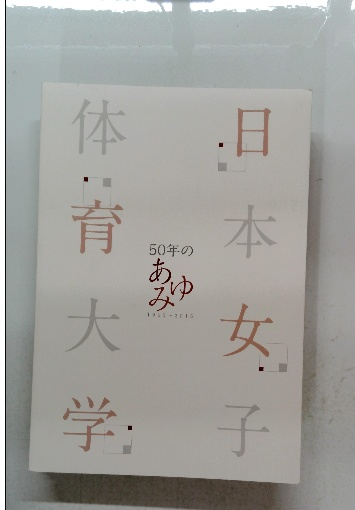 日本女子
体育大学
50年の
あゆみ
1965-2015